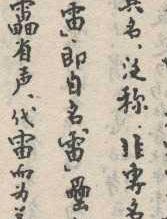 其名，泛称，非专名
雷”，即自名“雷”，罍
靁省声，代雷而为